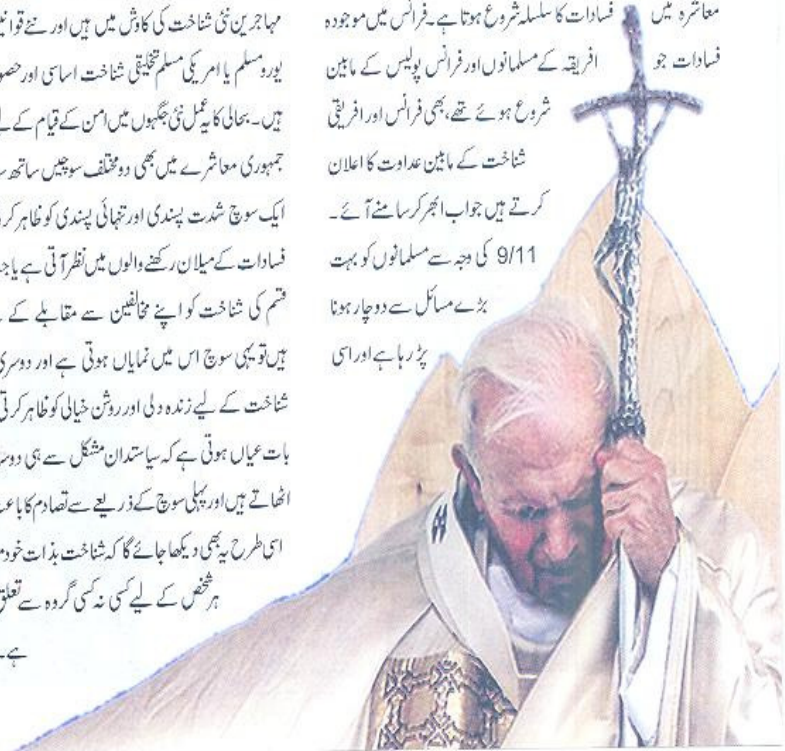 معاشرہ میں فسادات کا سلسلہ شروع ہوتا ہے۔ فرانس میں موجودہ
فسادات جو افریقہ کے مسلمانوں اور فرانس پولیس کے مابین
شروع ہوئے تھے، بھی فرانس اور افریقی
شناخت کے مابین عداوت کا اعلان
کرتے ہیں جو اب ابھر کر سامنے آئے۔
9/11 کی وجہ سے مسلمانوں کو بہت
بڑے مسائل سے دوچار ہونا
پڑ رہا ہے اور اسی
مہاجرین نئی شناخت کی کاوش میں ہیں اور نئے
یورو مسلم یا امریکی مسلم تخلیقی شناخت اساسی اور
ہیں۔ بحالی کا یہ عمل نئی جگہوں میں امن کے قیام کے
جمہوری معاشرے میں بھی دو مختلف سوچیں ساتھ
ایک سوچ شدت پسندی اور تنہائی پسندی کو ظاہر
فسادات کے میلان رکھنے والوں میں نظر آتی ہے یا
قسم کی شناخت کو اپنے مخالفین سے مقابلے کے
ہیں تو یہی سوچ اس میں نمایاں ہوتی ہے اور دوسری
شناخت کے لیے زندہ دلی اور روشن خیالی کو ظاہر کرتی
بات عیاں ہوتی ہے کہ سیاستدان مشکل سے ہی
اٹھاتے ہیں اور پہلی سوچ کے ذریعے سے تصادم کا
اسی طرح یہ بھی دیکھا جائے گا کہ شناخت بذات خود
ہر شخص کے لیے کسی نہ کسی گروہ سے تعلق
ہے۔